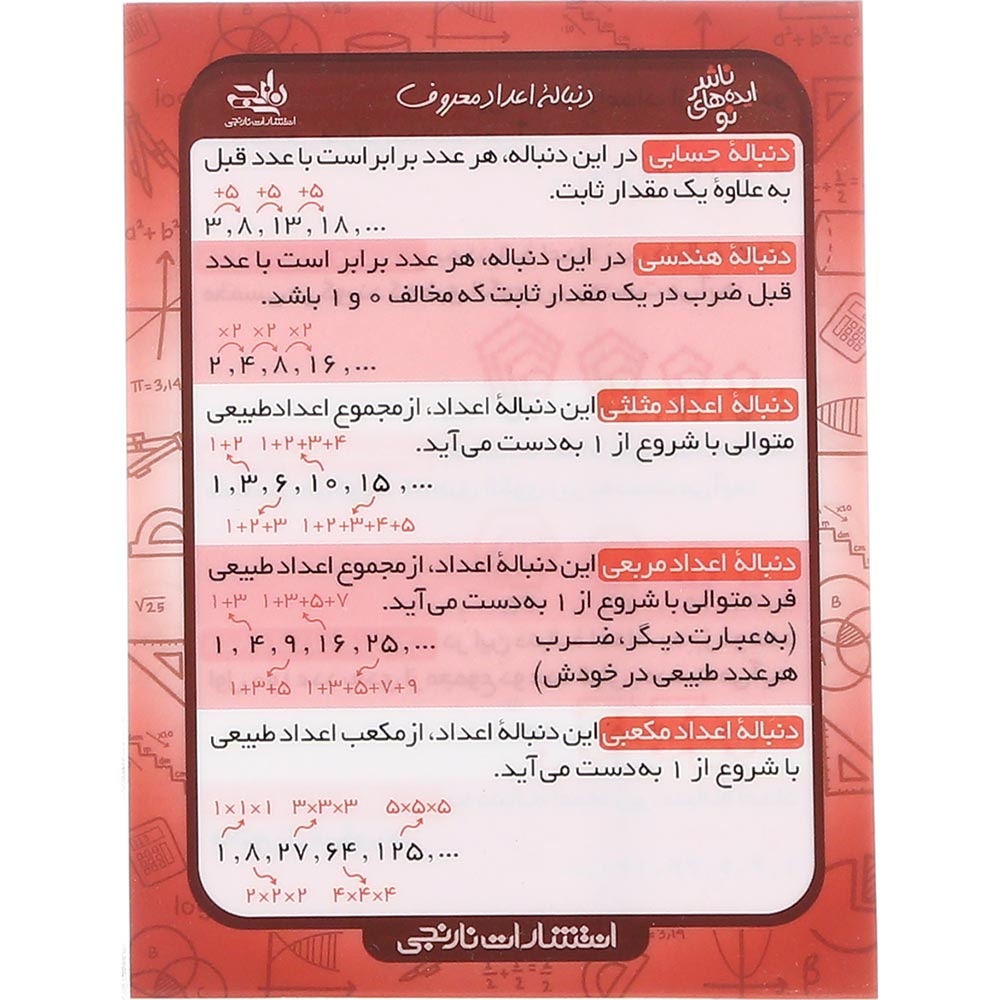 ناشر
ایده‌های
نو
دنبالهٔ اعداد معروف
انتشارات نارنجی
دنبالهٔ حسابی در این دنباله، هر عدد برابر است با عدد قبل
به علاوهٔ یک مقدار ثابت.
+۵ +۵ +۵
۳,۸,۱۳,۱۸,...
دنبالهٔ هندسی در این دنباله، هر عدد برابر است با عدد
قبل ضرب در یک مقدار ثابت که مخالف ۰ و ۱ باشد.
×۲ ×۲ ×۲
۲,۴,۸,۱۶,...
دنبالهٔ اعداد مثلثی این دنبالهٔ اعداد، از مجموع اعداد طبیعی
متوالی با شروع از ۱ به‌دست می‌آید.
۱+۲ ۱+۲+۳+۴
۱,۳,۶,۱۰,۱۵,...
۱+۲+۳ ۱+۲+۳+۴+۵
دنبالهٔ اعداد مربعی این دنبالهٔ اعداد، از مجموع اعداد طبیعی
فرد متوالی با شروع از ۱ به‌دست می‌آید.
۱+۳ ۱+۳+۵+۷
(به عبارت دیگر، ضرب
۱,۴,۹,۱۶,۲۵,...
هر عدد طبیعی در خودش)
۱+۳+۵ ۱+۳+۵+۷+۹
دنبالهٔ اعداد مکعبی این دنبالهٔ اعداد، از مکعب اعداد طبیعی
با شروع از ۱ به‌دست می‌آید.
۱×۱×۱ ۳×۳×۳ ۵×۵×۵
۱,۸,۲۷,۶۴,۱۲۵,...
۲×۲×۲ ۴×۴×۴
انتشارات نارنجی
a²+b²=c²
a²+b²
π=3,14
√25
B
B
=3,14